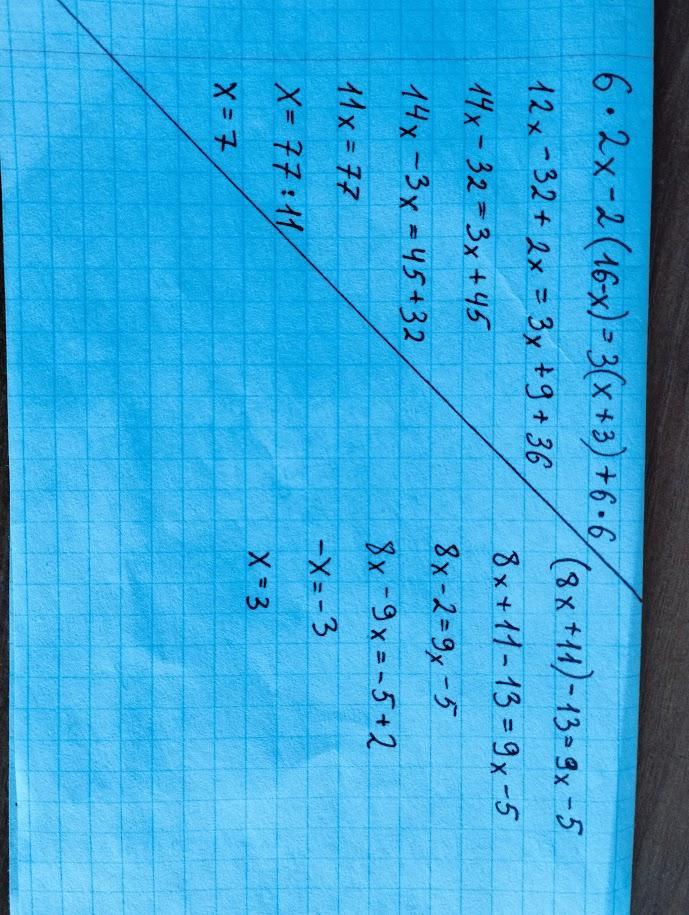 6 · 2x - 2(16-x) = 3(x+3) + 6 · 6
12x - 32 + 2x = 3x + 9 + 36
14x - 32 = 3x + 45
14x - 3x = 45 + 32
11x = 77
x = 77 : 11
x = 7
(8x + 11) - 13 = 9x - 5
8x + 11 - 13 = 9x - 5
8x - 2 = 9x - 5
8x - 9x = -5 + 2
-x = -3
x = 3